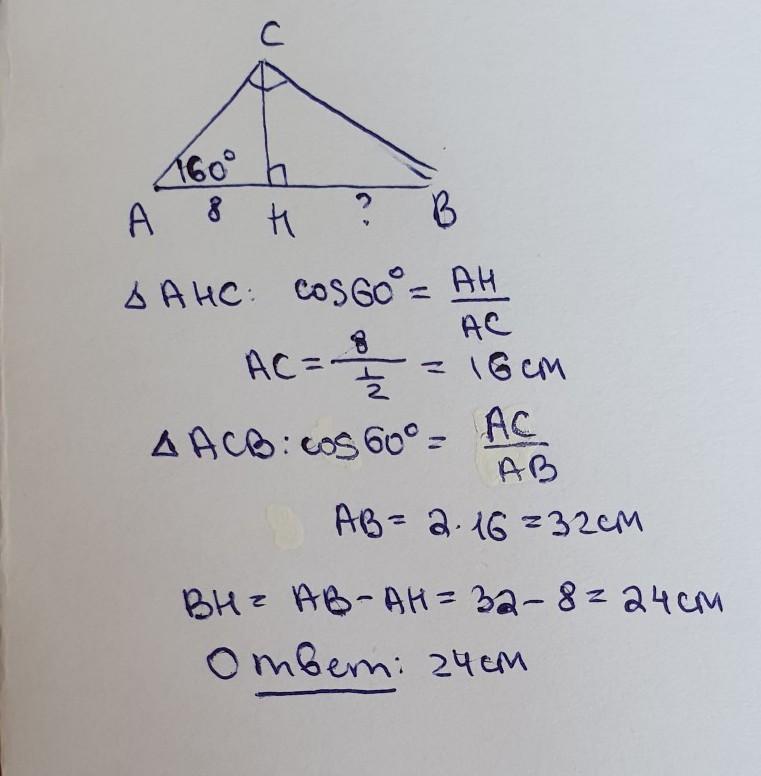 C
60°
A 8 H ? B
△AHC: cos60° = AH/AC
AC = 8/(1/2) = 16 см
△ACB: cos60° = AC/AB
AB = 2·16 = 32 см
BH = AB - AH = 32 - 8 = 24 см
Ответ: 24 см